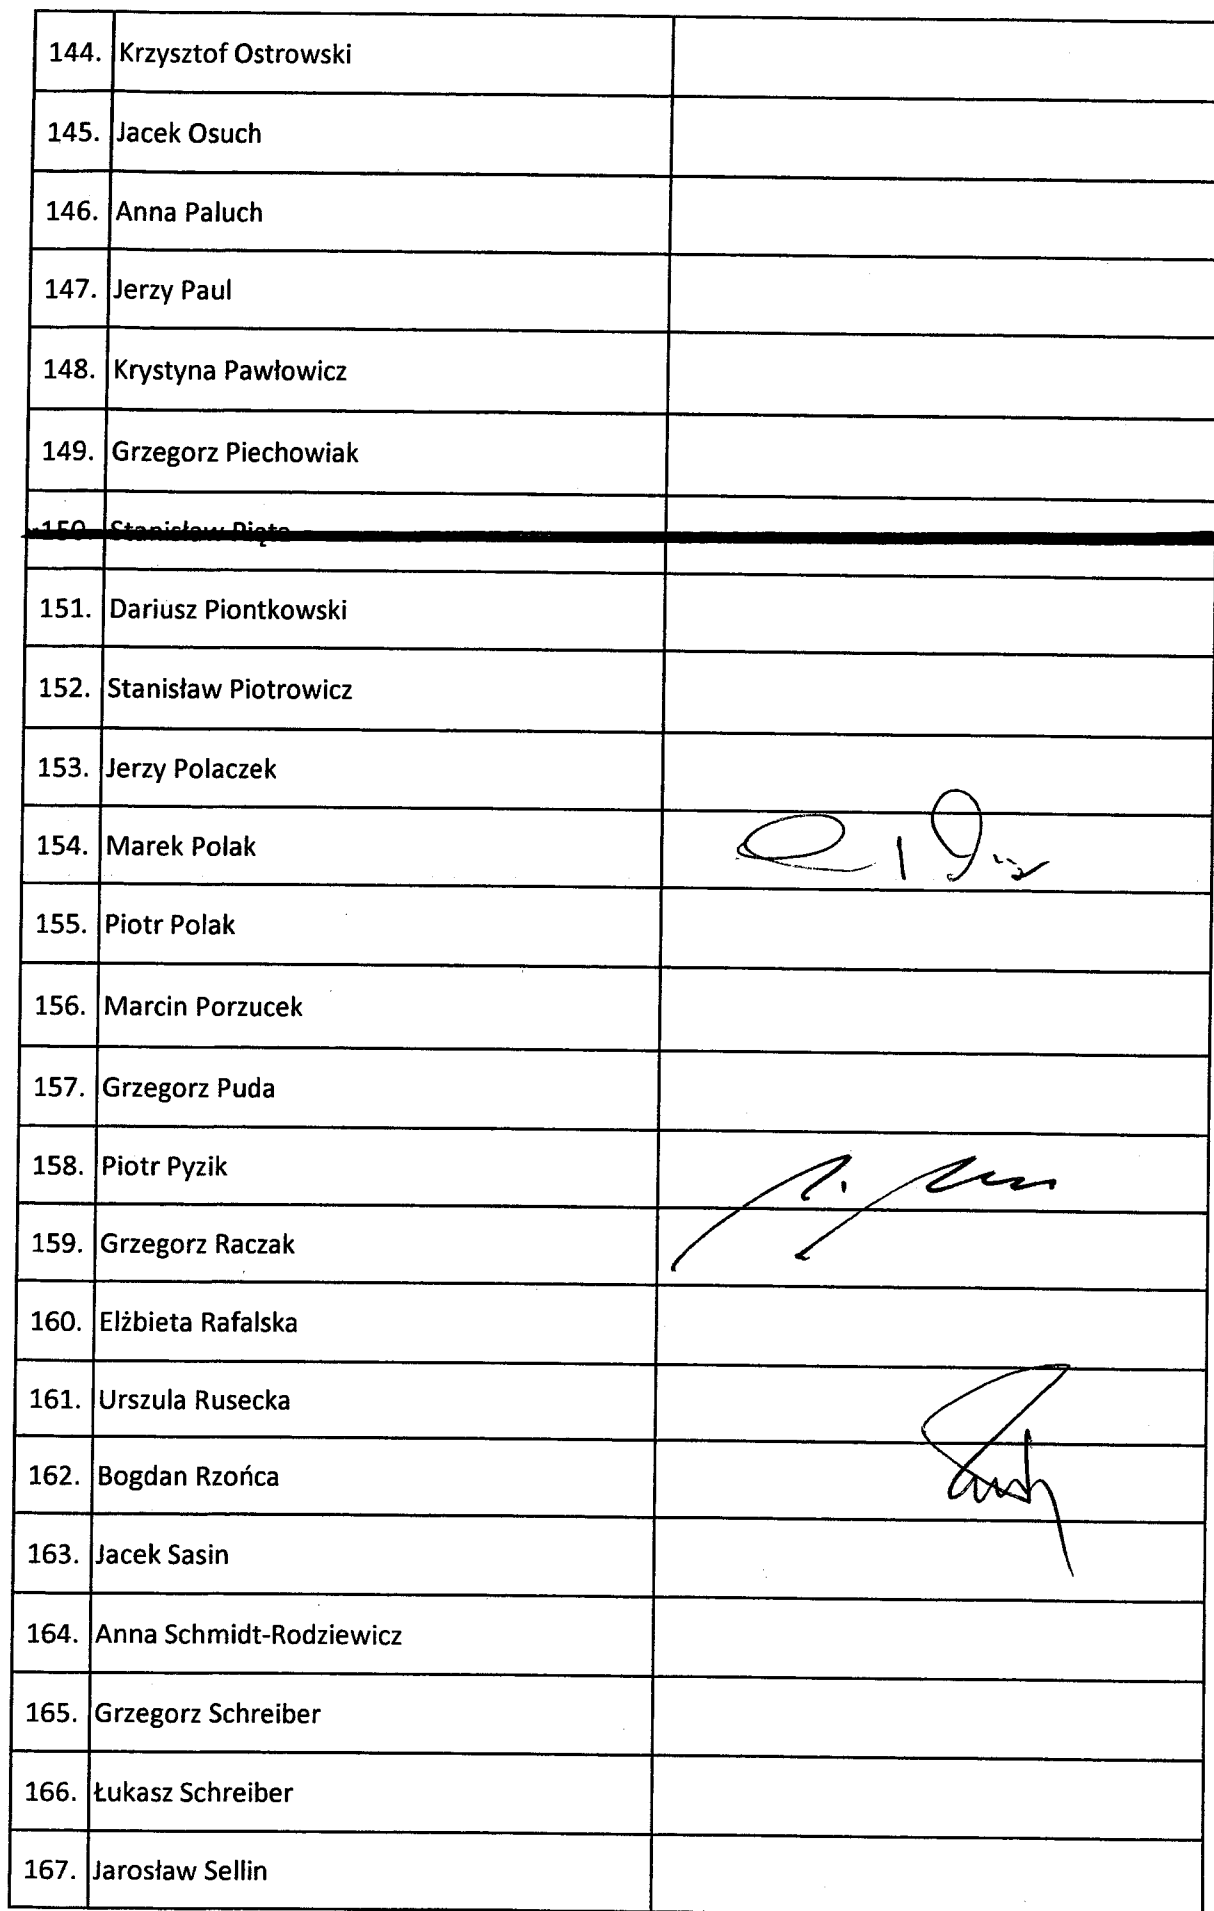 144. Krzysztof Ostrowski
145. Jacek Osuch
146. Anna Paluch
147. Jerzy Paul
148. Krystyna Pawłowicz
149. Grzegorz Piechowiak
150. Stanisław Pięta
151. Dariusz Piontkowski
152. Stanisław Piotrowicz
153. Jerzy Polaczek
154. Marek Polak
155. Piotr Polak
156. Marcin Porzucek
157. Grzegorz Puda
158. Piotr Pyzik
159. Grzegorz Raczak
160. Elżbieta Rafalska
161. Urszula Rusecka
162. Bogdan Rzońca
163. Jacek Sasin
164. Anna Schmidt-Rodziewicz
165. Grzegorz Schreiber
166. Łukasz Schreiber
167. Jarosław Sellin